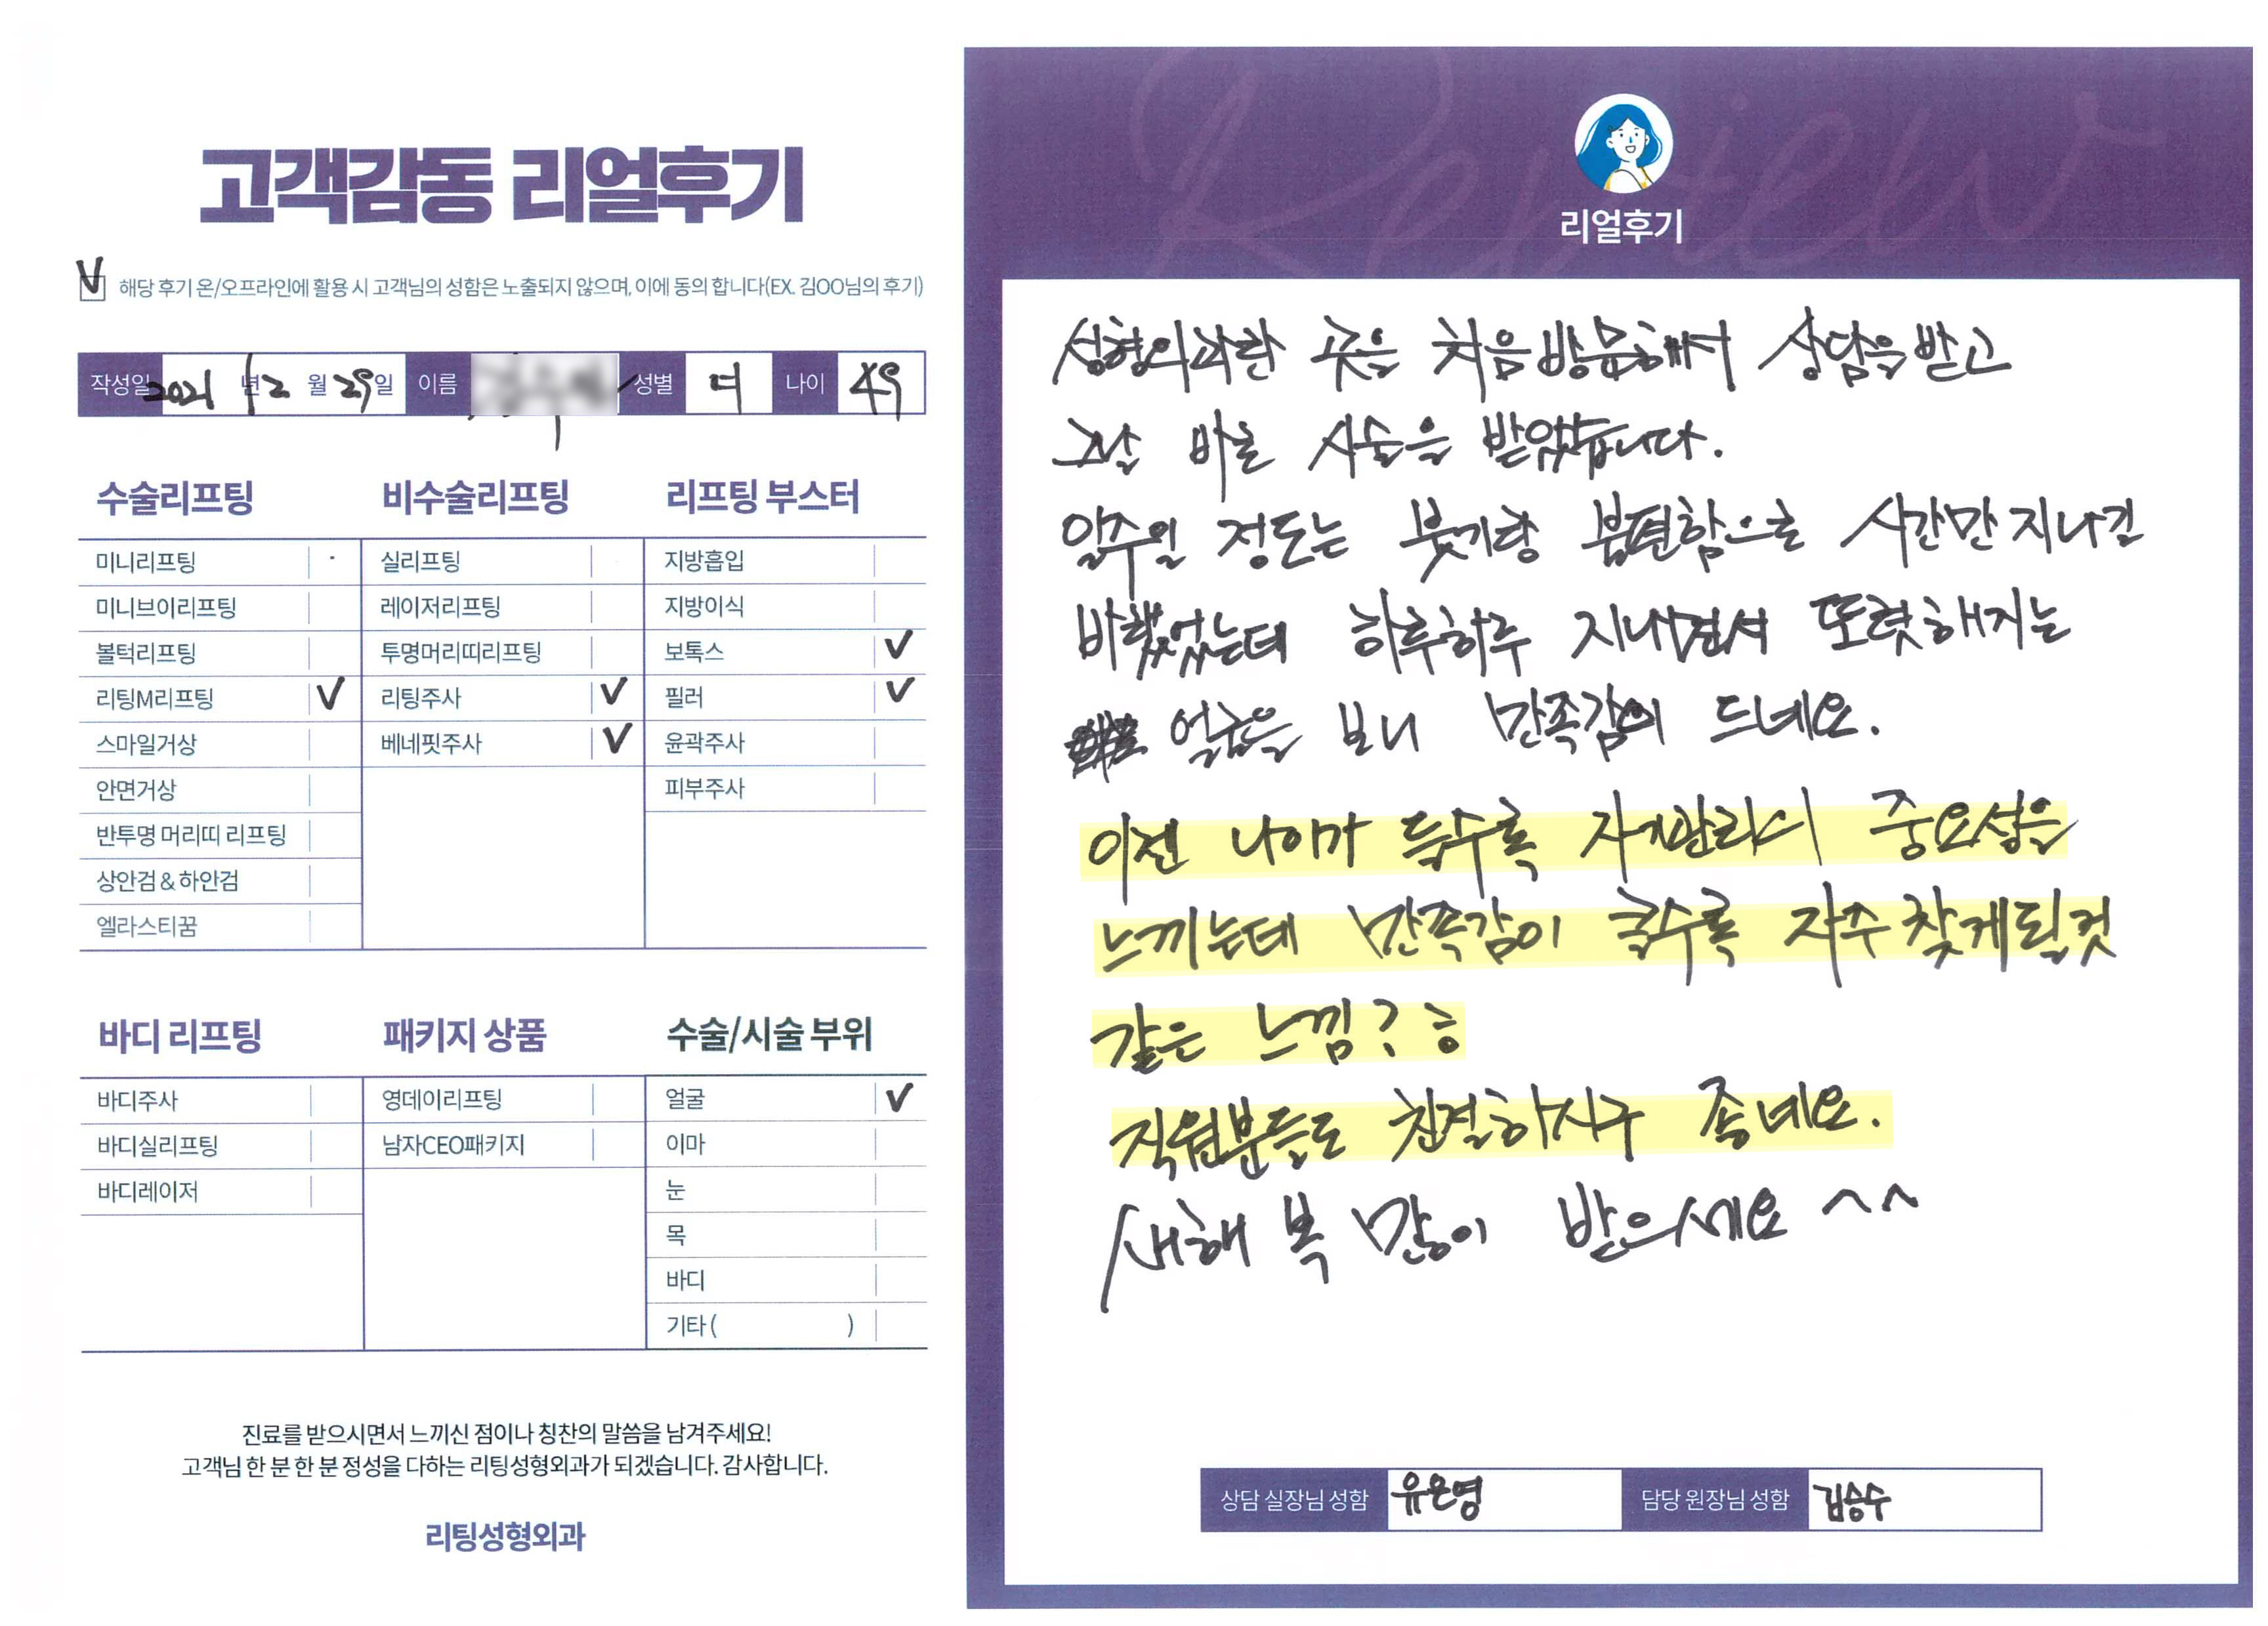 고객감동 리얼후기
V 해당 후기 온/오프라인에 활용 시 고객님의 성함은 노출되지 않으며, 이에 동의 합니다(EX. 김OO님의 후기)
작성일 2021 년 12 월 29일 이름 성별 여 나이 49
수술리프팅
미니리프팅
미니브이리프팅
볼턱리프팅
리팅M리프팅 V
스마일거상
안면거상
반투명 머리띠 리프팅
상안검 & 하안검
엘라스티꿈
비수술리프팅
실리프팅
레이저리프팅
투명머리띠리프팅
리팅주사 V
베네핏주사 V
리프팅 부스터
지방흡입
지방이식
보톡스 V
필러 V
윤곽주사
피부주사
바디 리프팅
바디주사
바디실리프팅
바디레이저
패키지 상품
영데이리프팅
남자CEO패키지
수술/시술 부위
얼굴 V
이마
눈
목
바디
기타 ( )
진료를 받으시면서 느끼신 점이나 칭찬의 말씀을 남겨주세요!
고객님 한 분 한 분 정성을 다하는 리팅성형외과가 되겠습니다. 감사합니다.
리팅성형외과
Review
리얼후기
성형외과란 곳을 처음방문해서 상담을 받고
그날 바로 시술을 받았습니다.
일주일 정도는 붓기랑 불편함으로 시간만 지나길
바랬었는데 하루하루 지내면서 또렷해지는
얼굴을 보니 만족감이 드네요.
이젠 나이가 들수록 자기관리의 중요성을
느끼는데 만족감이 클수록 자주 찾게될것
같은 느낌? ㅎ
직원분들도 친절하시구 좋네요.
새해 복 많이 받으세요 ^^
상담 실장님 성함 유은영 담당 원장님 성함 김승수